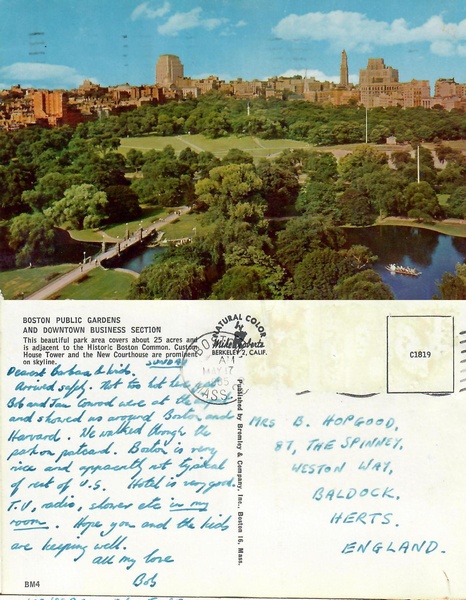 BOSTON PUBLIC GARDENS
AND DOWNTOWN BUSINESS SECTION
This beautiful park area covers about 25 acres and
is adjacent to the Historic Boston Common. Custom
House Tower and the New Courthouse are prominent
on skyline.
SUNDAY
Dearest Barbara & kids.
Arrived safely. Not too hot here
Bob and Jan Conrod were at the
and showed us around Boston and
Harvard. We walked through the
park on postcard. Boston is very
nice and apparently not typical
of rest of U.S. Hotel is very good.
T.V., radio, shower etc in my
room. Hope you and the kids
are keeping well.
all my love
Bob
BM4
Published by Bromley & Company, Inc., Boston 16, Mass.
NATURAL COLOR
Mike Roberts
BERKELEY 2, CALIF.
BOSTON
AM
MAY 17
MASS
C1819
MRS B. HOPGOOD,
87, THE SPINNEY,
WESTON WAY,
BALDOCK.
HERTS.
ENGLAND.